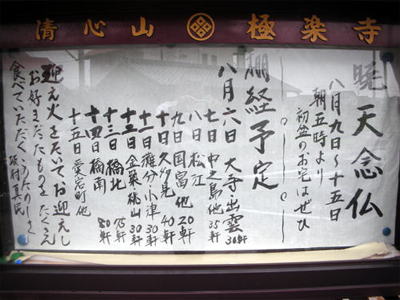 清心山 極楽寺
暁天念仏
八月九日〜十五日
朝五時より
初盆のお宅はぜひ
棚経予定
八月六日 大寺・出雲 30軒
七日 中之島他 35軒
八日 松江
九日 国富他 20軒
十日 久多見 40軒
十一日 灘分・小津 30軒
十二日 金築・桃山 30軒
十三日 橋北 75軒
十四日 橋南 80軒
十五日 愛宕町他
迎え火をたいてお迎えし
お好きだったものをたくさん
食べていただく
坂村真民